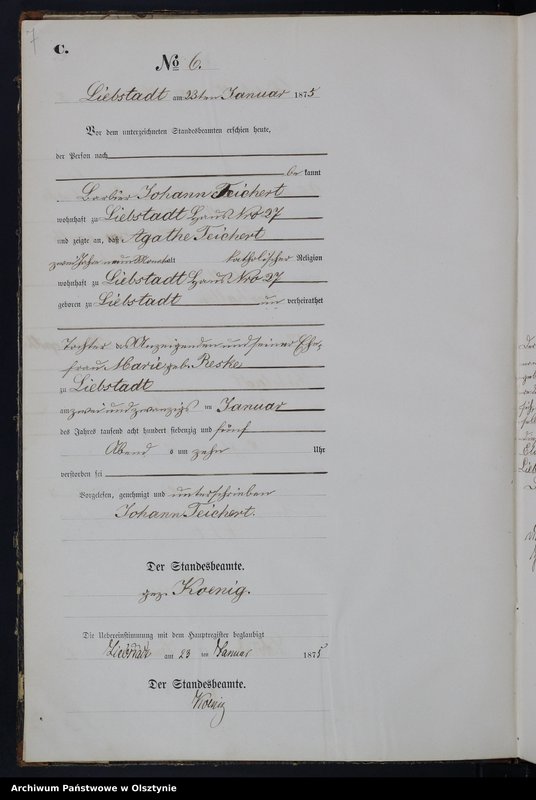 7
C.
No 6.
Liebstadt am 23ten Januar 1875
Vor dem unterzeichneten Standesbeamten erschien heute,
der Person nach
be kannt
Barbier Johann Teichert
wohnhaft zu Liebstadt Haus Nro 27
und zeigte an, daß Agathe Teichert
zwei Jahre neun Monat alt katholischer Religion
wohnhaft zu Liebstadt Haus Nro 27
geboren zu Liebstadt un verheirathet
Tochter des Anzeigenden und seiner Ehe-
frau Marie geb. Reske
zu Liebstadt
am zwei und zwanzigs ten Januar
des Jahres tausend acht hundert siebenzig und fünf
Abend s um zehn Uhr
verstorben sei
Vorgelesen, genehmigt und unterschrieben
Johann Teichert.
Der Standesbeamte.
gez. Koenig.
Die Uebereinstimmung mit dem Hauptregister beglaubigt
Liebstadt am 23 ten Januar 1875
Der Standesbeamte.
Koenig
Archiwum Państwowe w Olsztynie